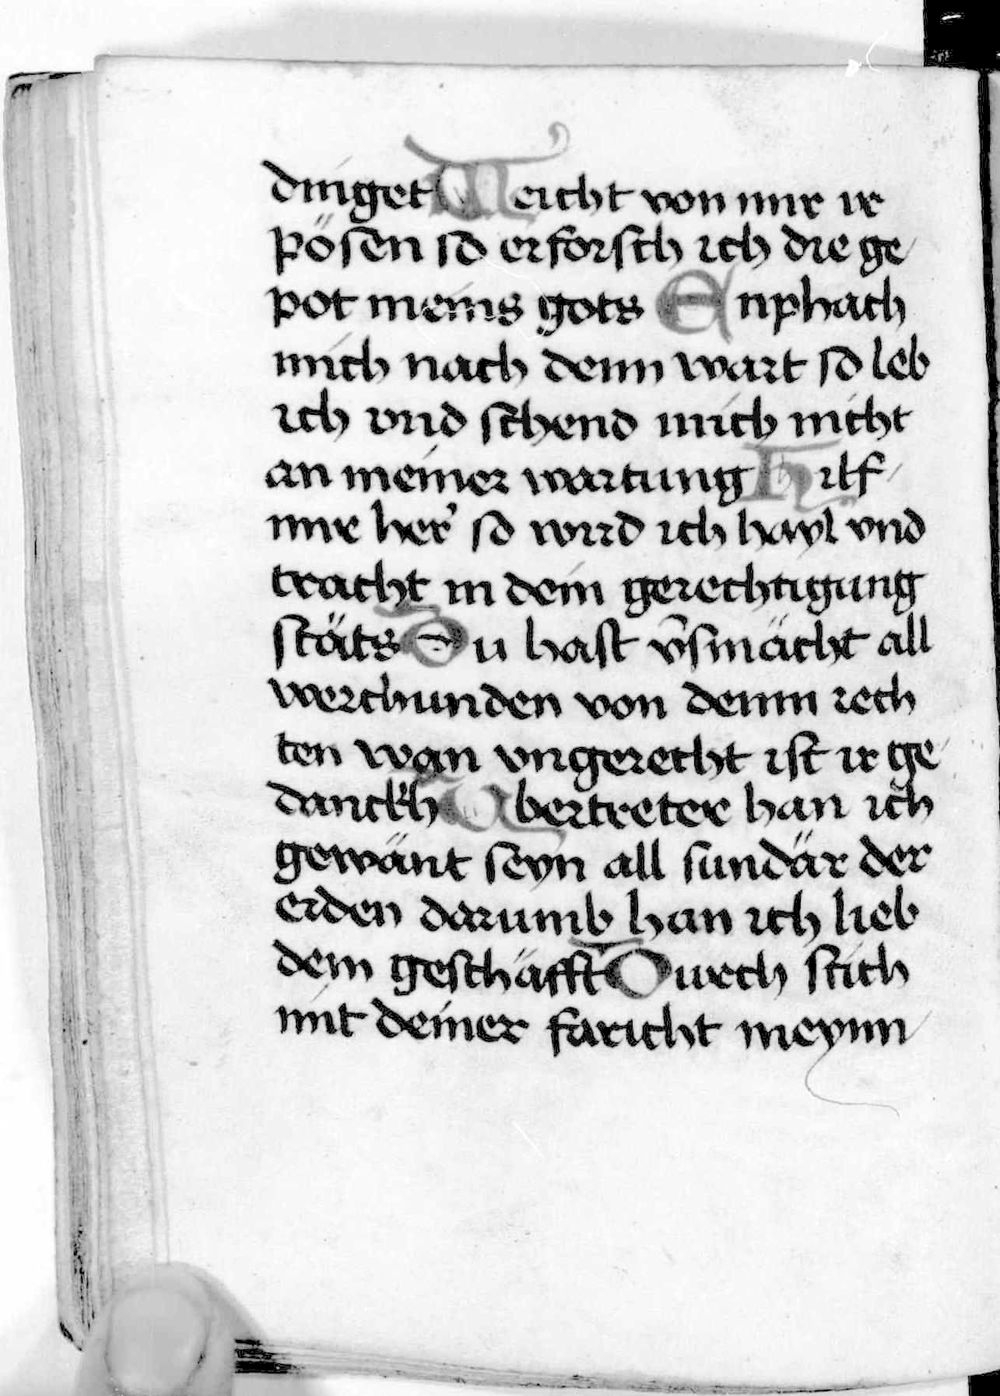 dinget Weicht von mir ir
pösen so erforsch ich die ge
pot meins gots Enphach
mich nach deim wart so leb
ich vnd schend mich nicht
an meiner wartung Hilf
mir her' so wird ich hayl vnd
tracht in dein gerechtigung
stäts Du hast v̄smächt all
werchunden von deinn rech
ten wan vngerecht ist ir ge
danckh Vbertreter han ich
gewänt seyn all sundär der
erden darumb han ich lieb
dein geschäfft Durch stich
mit deiner faricht meynn